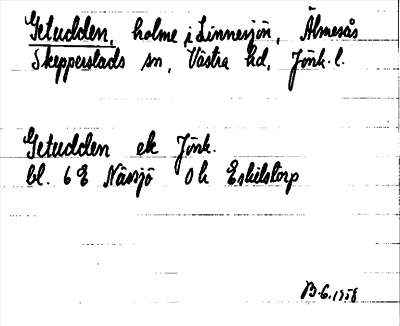 Getudden, holme i Linnesjön, Älmesås
Skepperstads sn, Västra hd, Jönk. l.
Getudden ek Jönk.
bl. 6 E Nässjö 0 h Eskilstorp
B.G. 1958